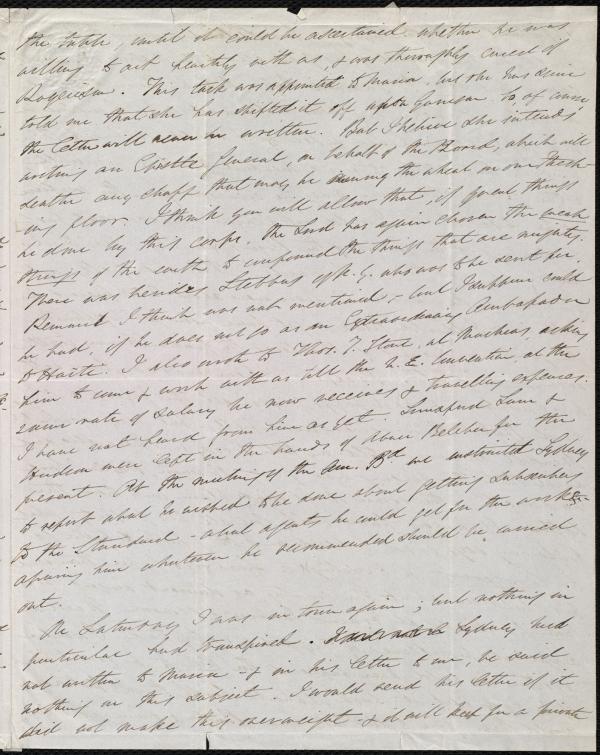 the table, until it could be ascertained whether he was
willing to act heartily with us, & was thoroughly cured of
Rogerism. This task was appointed to Maria, but she has since
told me that she has shifted it off upon Garrison. So, of course,
the letter will never be written. But I believe she intends
writing an Epistle General, on behalf of the Board, which will
scatter any chaff that may be among the wheat on our thresh-
ing floor. I think you will allow that, if great things
be done by this corps, the Lord has again chosen the weak
things of the earth to confound the things that are mighty.
There was besides Stebbins of N. Y. who was to be sent for.
Remond I think was not mentioned, - but I suppose could
be had, if he does not go as an Extraordinary Ambassador
to Haiti. I also wrote to Thos. T. Stone, at Machias, asking
him to come & work with us till the N. E. Convention, at the
same rate of salary he now receives & travelling expences.
I have not heard from him as yet.
Hudson were left in the hands of Abner Belcher for the
present. At the meeting of the Am. Bd. we instructed Sydney
to report what he wished to be done about getting subscribers
to the Standard - what agents he could get for the work &c -
assuring him whatever he recommended should be carried
out.
On Saturday I was in town again; but nothing in
particular had transpired. Sydney had
not written to Maria - & in his letter to me, he said
nothing on this subject. I would send his letter if it
did not make this overweight - & it will keep for a private